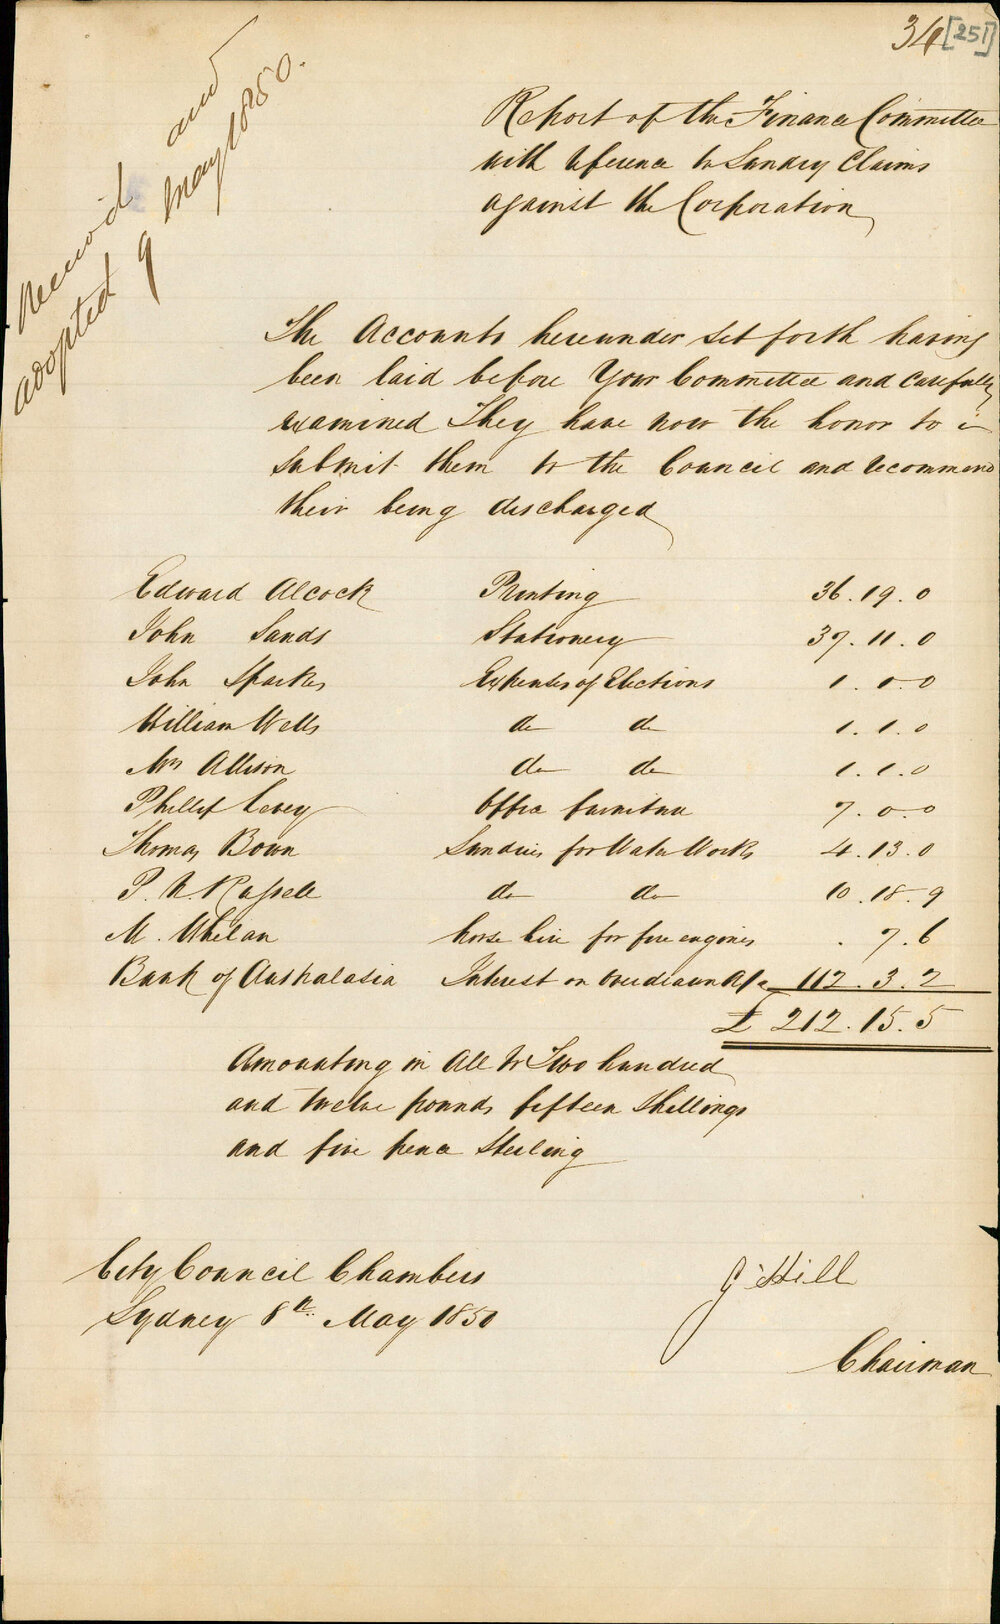 34 [251]
Received and
adopted 9 May 1850.
Report of the Finance Committee
with reference to Sundry Claims
against the Corporation
The Accounts hereunder set forth having
been laid before Your Committee and carefully
examined They have now the honor to
submit them to the Council and recommend
their being discharged
Edward Alcock Printing 36.19.0
John Sands Stationery 37.11.0
John Sparkes Expenses of Elections 1.0.0
William Wells do do 1.1.0
Mrs Allison do do 1.1.0
Phillip Cavey Office furniture 7.0.0
Thomas Bown Sundries for Water Works 4.13.0
P. N. Russell do do 10.18.9
M. Whelan horse hire for fire engines . 7.6
Bank of Australasia Interest on overdrawn A/c 112.3.2
£ 212.15.5
Amounting in All to Two hundred
and twelve pounds fifteen Shillings
and five pence Sterling
City Council Chambers
Sydney 8th May 1850
G Hill
Chairman